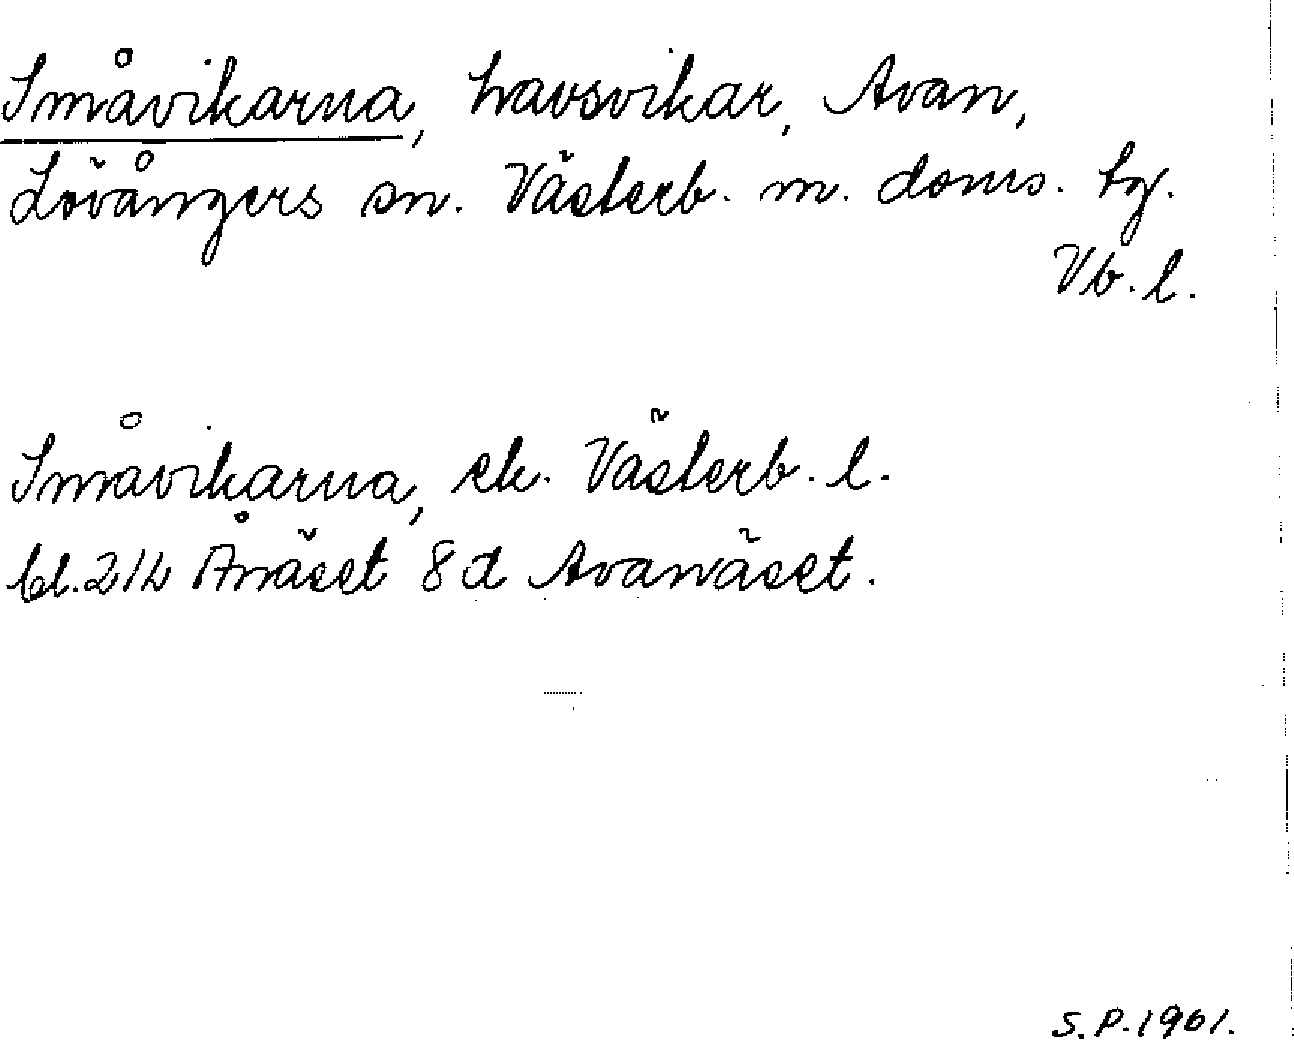 Småvikarna, havsvikar, Avan,
Lövångers sn. Västerb. m. doms. tg.
Vb. l.
Småvikarna, ek. Västerb. l.
bl. 21L Ånäset 8d Avanäset.
S.P. 1961.